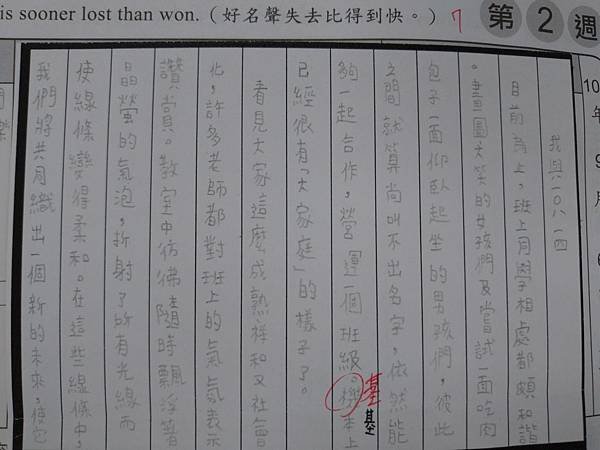 is sooner lost than won.(好名聲失去比得到快。)7
第2週
10
年
9
月
我與一○八一四
目前為止,班上同學相處都頗和諧
。畫圖大笑的女孩們及嘗試一面吃肉
包子一面仰臥起坐的男孩們,彼此
之間就算尚叫不出名字,依然能
夠一起合作,營運一個班級。機本上
基
基
已經很有「大家庭」的樣子了。
看見大家這麼成熟祥和又社會
化,許多老師都對班上的氣氛表示
讚賞。教室中彷彿隨時飄浮著
晶瑩的氣泡,折射了所有光線而
使線條變得柔和。在這些線條中,
我們將共同織出一個新的未來,使它